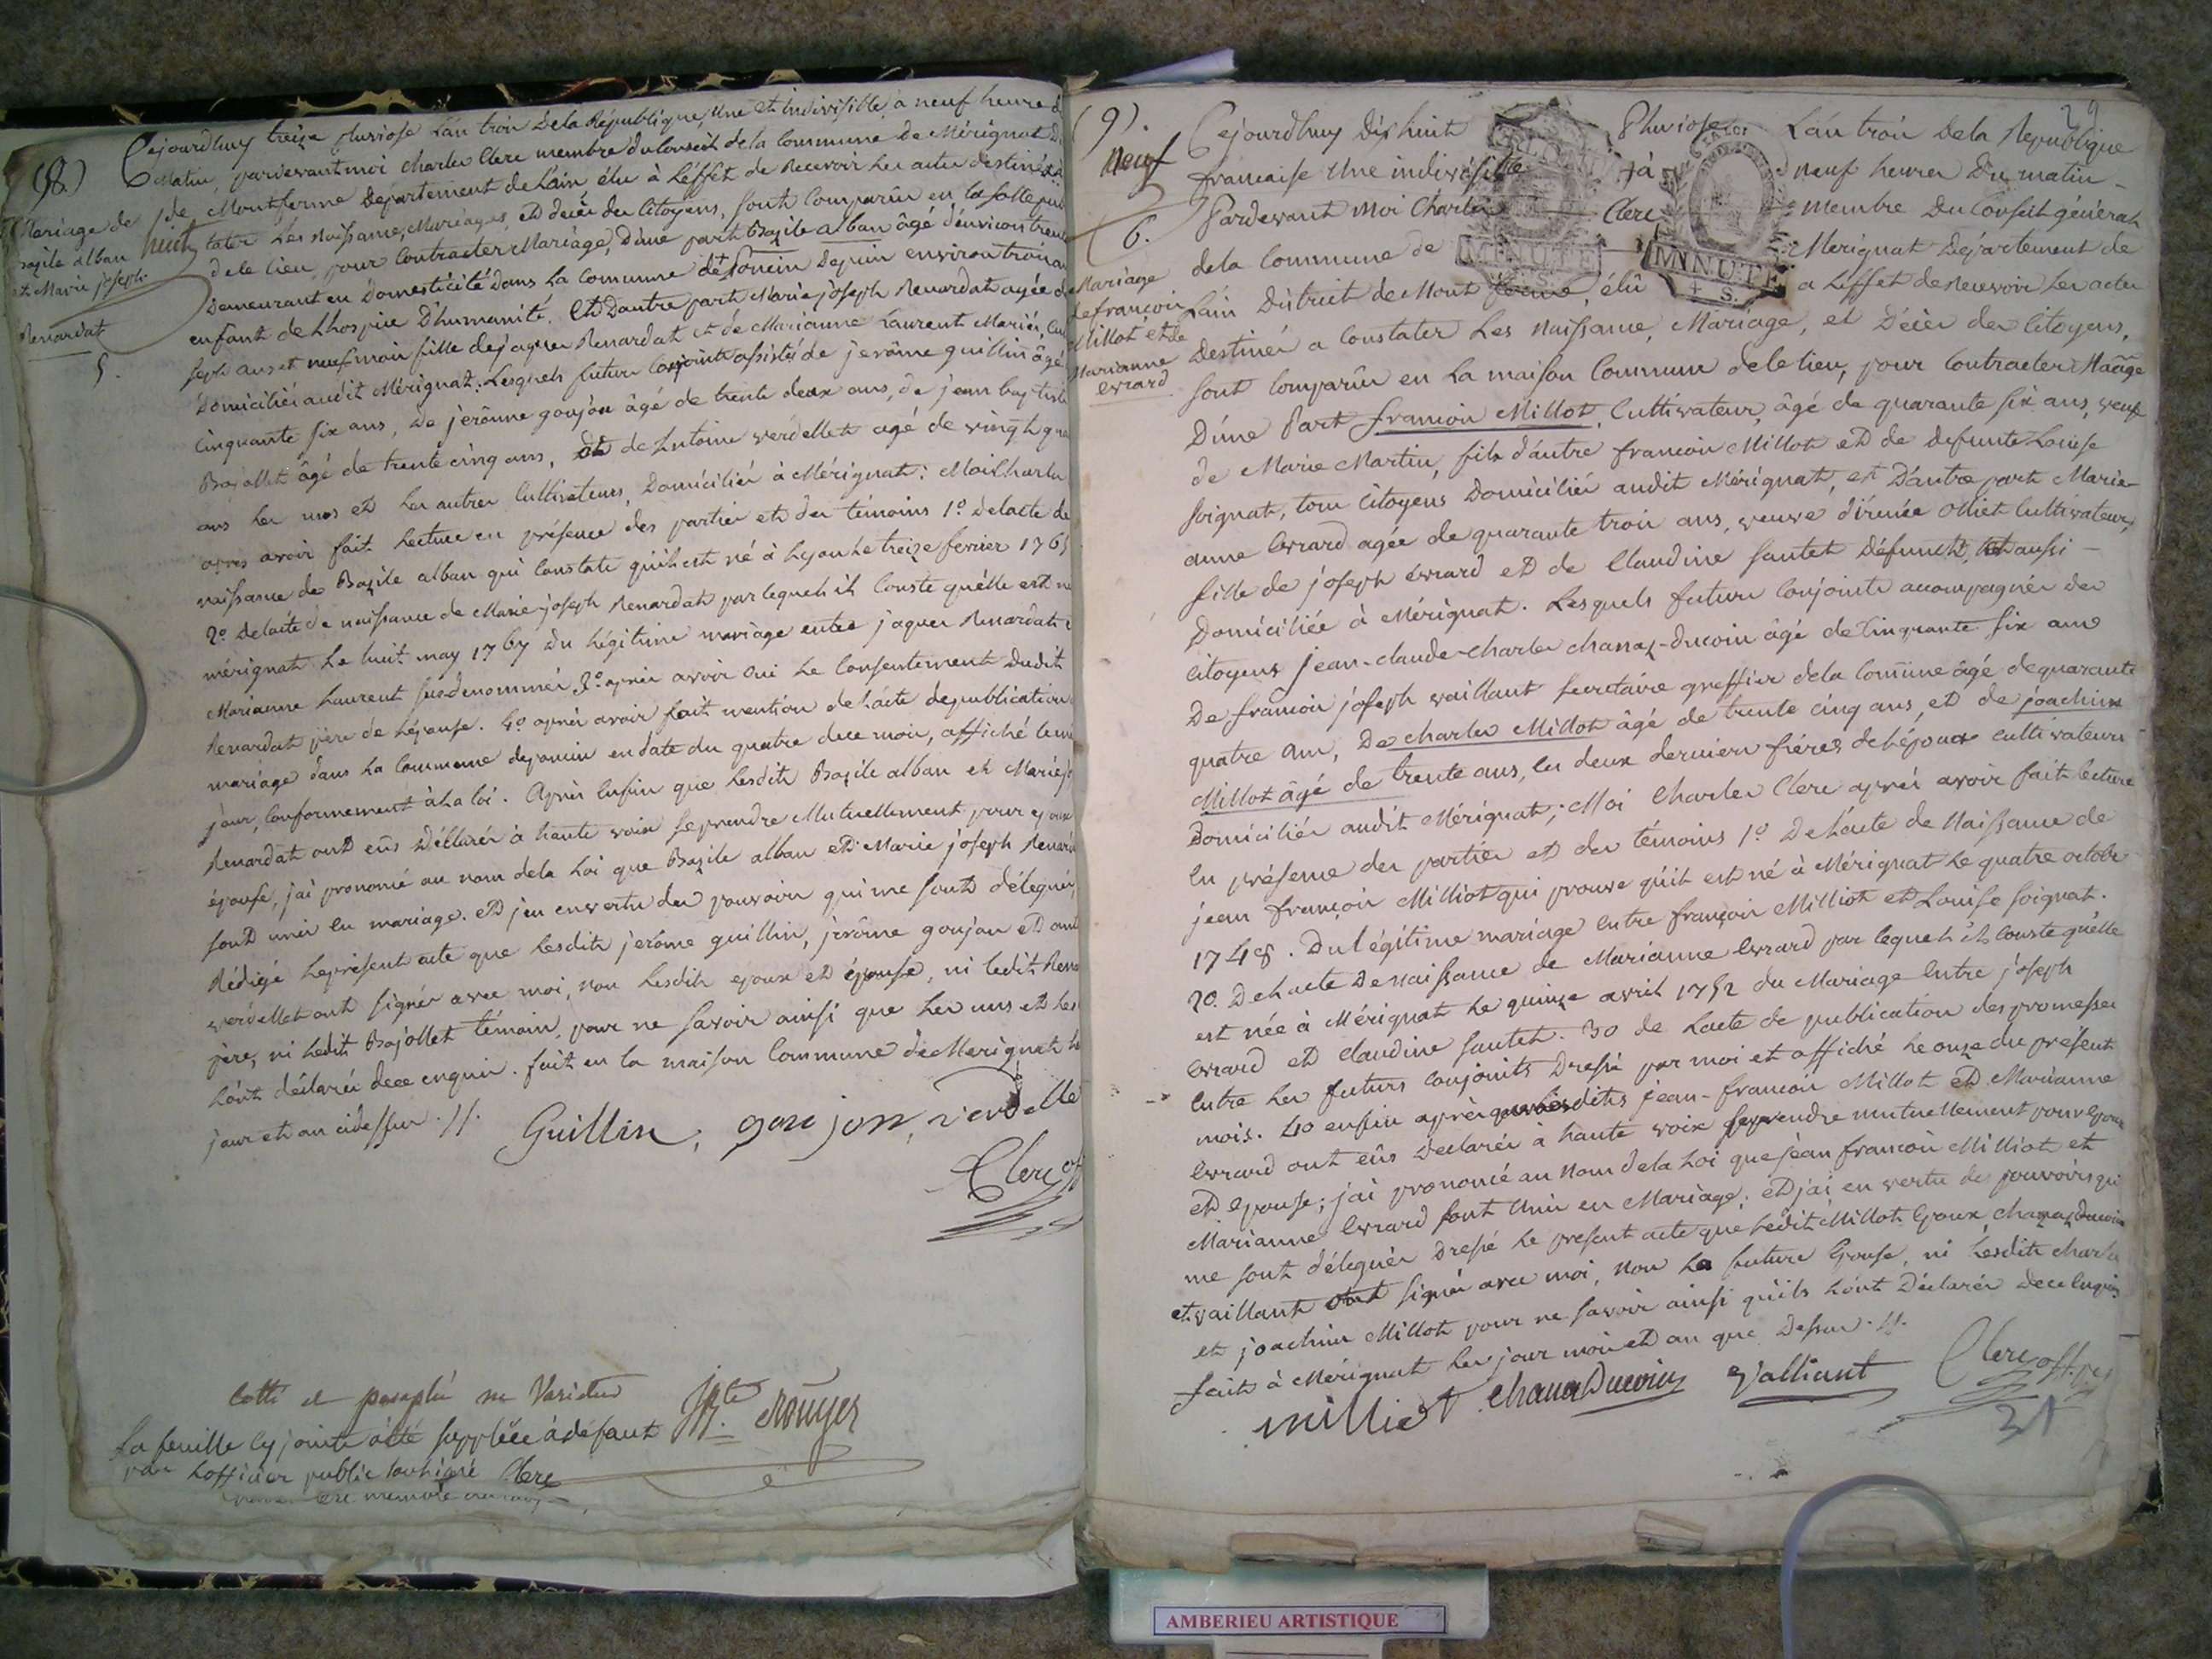 (8.)
huit
Mariage de
Bazile alban
et Marie joseph
Renardat
5.
Cejourdhuy treize pluviose L'an troi de la Republique, Une et indivisible, a neuf heure
Matin, pardevant moi Charles Clerc membre du Conseil de la Commune de Mérignat
de Montferme Département de L'ain élu à L'effet de Recevoir Les actes destinés
tater Les Naissance, Mariages, et décès des Citoyens, sont Comparûs en la salle
de ce lieu, pour Contracter Mariage, d'une part Bazile alban âgé d'environ trente
Demeurant en Domesticité dans La Commune de Poncin Depuis environ trois an
enfant de L'hospice D'humanité. Et D'autre part Marie joseph Renardat agée de
sept ans et neuf mois fille de jaques Renardat et de Marianne Laurent Mariés,
Domiciliés audit Mérignat. Lesquels futurs Conjoints assistés de jerôme guillin âgé
Cinquante six ans, De jerônne goujon âgé de trente deux ans, de jean baptiste
Bajollet âgé de trente cinq ans, de Antoine verdellet agé de vingt
ans Les uns et Les autres Cultivateurs, Domiciliés à Mérignat: Moi Charles
apres avoir fait Lecture en présence des parties et des témoins 1o. De lacte de
naissance de Bazile alban qui Constate quil est né à Lyon Le treize fevrier 176
2o. De lacte de naissance de Marie joseph Renardat par lequel il Conste quelle est
mérignat Le huit may 1767 du Légitime mariage entre jaques Renardat
Marianne Laurent susdenommés 3o. après avoir oui Le Consentement dudit
Renardat père de L'épouse. 4o. après avoir fait mention de Lacte de publication
mariage dans La Commune de poncin en date du quatre de ce mois, affiché le
jour, Conformement à La loi. Après Enfin que Lesdits Bazile alban et Marie
Renardat ont eûs Déclarés à haute voix se prendre Mutuellement pour epoux
épouse, jai prononcé au nom dela Loi que Bazile alban et Marie joseph
sont unis en mariage. et jen envertu des pouvoirs qui me sont délegués,
Rédigé Le présent acte que Lesdits jerôme guillin, jerôme goujon et
verdellet ont signés avec moi, non Lesdits epoux et épouse, ni ledit
père, ni Ledit Bajollet témoin, pour ne savoir ainsi que Les uns et les
L'ont déclarés de ce enquis. fait en la maison Commune de Merignat
jour et an cidessus .//.
Guillin, goujon, verdelle
Clerc
Cotté et paraphé
La feuille cy jointe a été supplée à défaut
par L'officier public soussigné Clerc
(9).
Neuf
6.
Mariage
de françois
Millot et de
Marianne
evrard
29
Cejourdhuy Dix huit Pluviose L'an troi Dela Republique
francaise Une indivisible à neuf heures Du matin
Pardevant Moi Charles Clerc Membre Du Conseil général
dela Commune de Merignat Département de
L'ain District de Mont ferme, élû a L'effet de Recevoir Les actes
MINUTE
MINUTE
Destinés a Constater Les Naissance, Mariage, et Décès des Citoyens,
sont Comparûs en La maison Commune de ce lieu, pour Contracter Maãge
D'une Part francois Millot, Cultivateur, âgé de quarante six ans, veuf
de Marie Martin, fils d'autre francois Millot et de defunte Louise
soignat, tous Citoyens Domiciliés audit Mérignat, et D'autre part Marie-
anne Evrard agée de quarante trois ans, veuve d'irenée olliet Cultivateur,
fille de joseph évrard et de Claudine sautet Défunct, aussi
Domiciliée à Mérignat. Lesquels futurs Conjoints accompagnés des
Citoyens jean-claude-charles chanaz-ducoin âgé de Cinquante six ans
De francois joseph vaillant secretaire greffier dela Com̃une âgé de quarante
quatre ans, De charles Millot âgé de trente cinq ans, et de joachim
Millot âgé de trente ans, les deux derniers fréres de L'époux cultivateurs
Domiciliés audit Mérignat; Moi Charles Clerc après avoir fait lecture
En présence des parties et des témoins 1o De L'acte de Naissance de
jean françois Milliot qui prouve qu'il est né à Mérignat Le quatre octobre
1748. Du Légitime mariage Entre françois Milliot et Louise soignat.
20. De Lacte De naissance de Marianne Evrard par lequel il Conste quelle
est née à Mérignat Le quinze avril 1752 du Mariage Entre joseph
Evrard et Claudine sautet. 30 de Lacte de publication des promesses
Entre Les futurs Conjoints Dressé par moi et affiché Le onze du présent
mois. 40 enfin après que Lesdits jean-francois Millot et Marianne
Evrard ont eûs Declarés à haute voix se prendre mutuellement pour Epoux
et Epouse; jai prononcé au Nom de la Loi que jean francois Milliot et
Marianne Evrard sont Unis en Mariage. et j'ai en vertu des pouvoirs qui
me sont délegués Dressé Le present acte que Ledit Millot Epoux, chanaz Ducoin
et vaillant ont signés avec moi, Non La future Epouse, ni Lesdits charles
et joachim Millot pour ne savoir ainsi qu'ils L'ont Déclarés De ce Enquis
fait à Mérignat Les jour mois et an que Dessus .//.
milliot chanaz Ducoin Valliant Clerc off. p.
31
AMBERIEU ARTISTIQUE